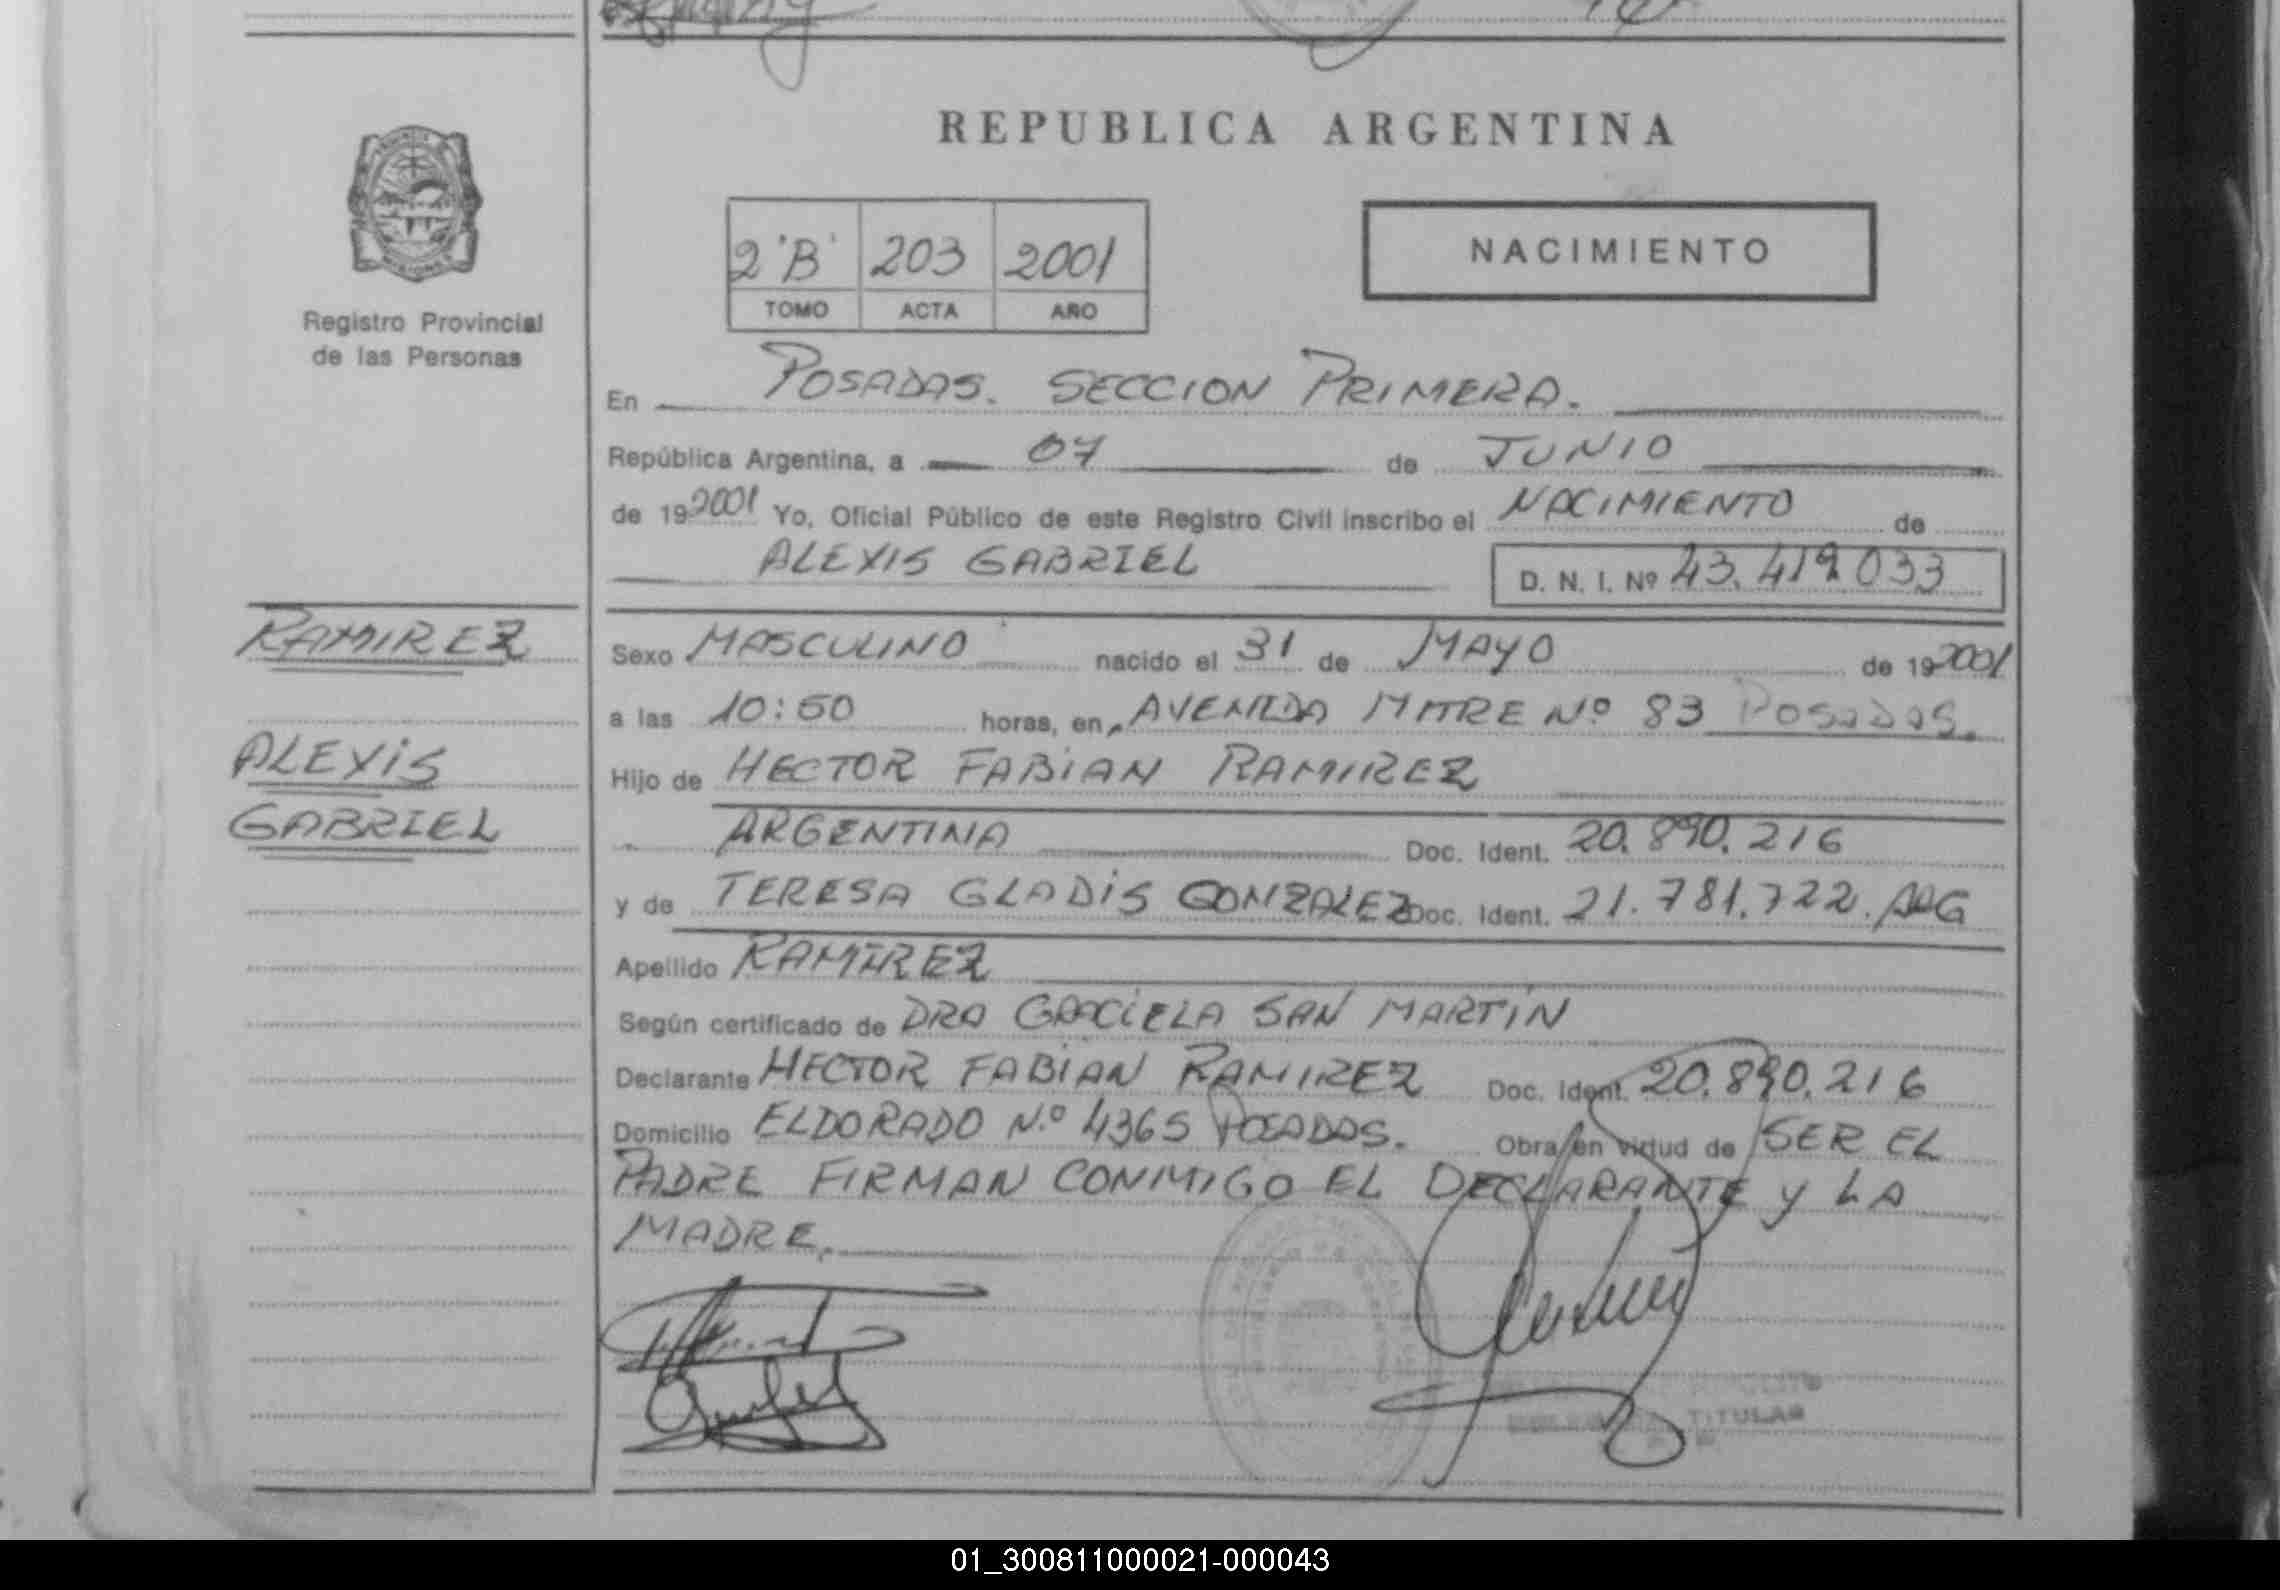 REPUBLICA ARGENTINA
PROVINCIA
MISIONES
Registro Provincial
de las Personas
2 'B' 203 2001
TOMO ACTA AÑO
NACIMIENTO
En POSADAS. SECCION PRIMERA.
República Argentina, a 07 de JUNIO
de 19 2001 Yo, Oficial Público de este Registro Civil inscribo el NACIMIENTO de
ALEXIS GABRIEL D. N. I. Nº 43.419 033
RAMIREZ
ALEXIS
GABRIEL
Sexo MASCULINO nacido el 31 de MAYO de 19 2001
a las 10:50 horas, en AVENIDA MITRE Nº 83 POSADAS.
Hijo de HECTOR FABIAN RAMIREZ
ARGENTINA Doc. Ident. 20.890.216
y de TERESA GLADIS GONZALEZ Doc. Ident. 21.781.722. ARG
Apellido RAMIREZ
Según certificado de DRA GRACIELA SAN MARTIN
Declarante HECTOR FABIAN RAMIREZ Doc. Ident. 20.890.216
Domicilio ELDORADO N.º 4365 POSADAS. Obra en virtud de SER EL
PADRE FIRMAN CONMIGO EL DECLARANTE Y LA
MADRE.
TITULAR
01_300811000021-000043